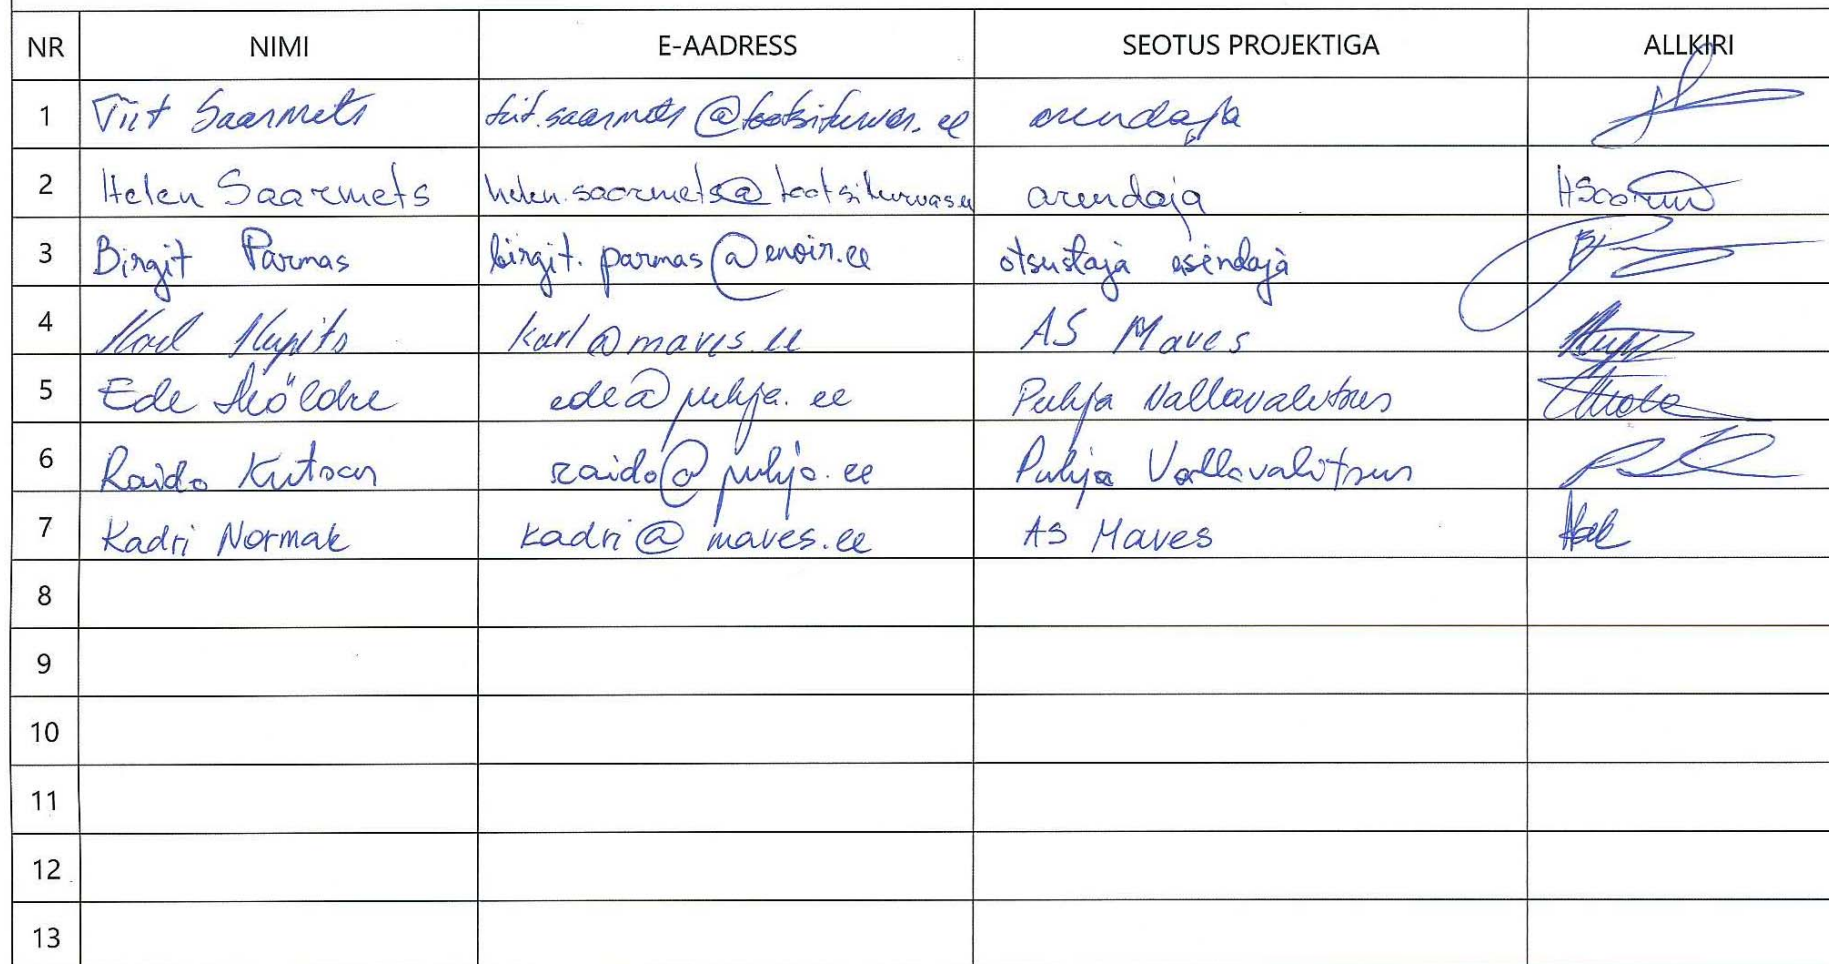 NR NIMI E-AADRESS SEOTUS PROJEKTIGA ALLKIRI
1 Tiit Saarmets tiit.saarmets@tootsiturvas.ee arendaja
2 Helen Saarmets helen.saarmets@tootsiturvas.ee arendaja
3 Birgit Parmas birgit.parmas@enoir.ee otsustaja esindaja
4 Karl Kupits karl@maves.ee AS Maves
5 Ede Möldre ede@puhja.ee Puhja Vallavalitsus
6 Raido Kutsar raido@puhja.ee Puhja Vallavalitsus
7 Kadri Normak kadri@maves.ee AS Maves
8
9
10
11
12
13